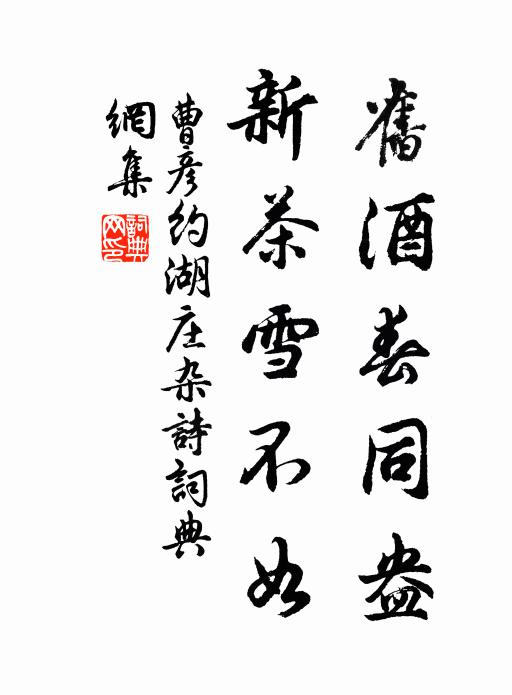 舊酒春同盎
新茶雪不如
曹彦約湖庄杂詩詞典
網集
詞典网印